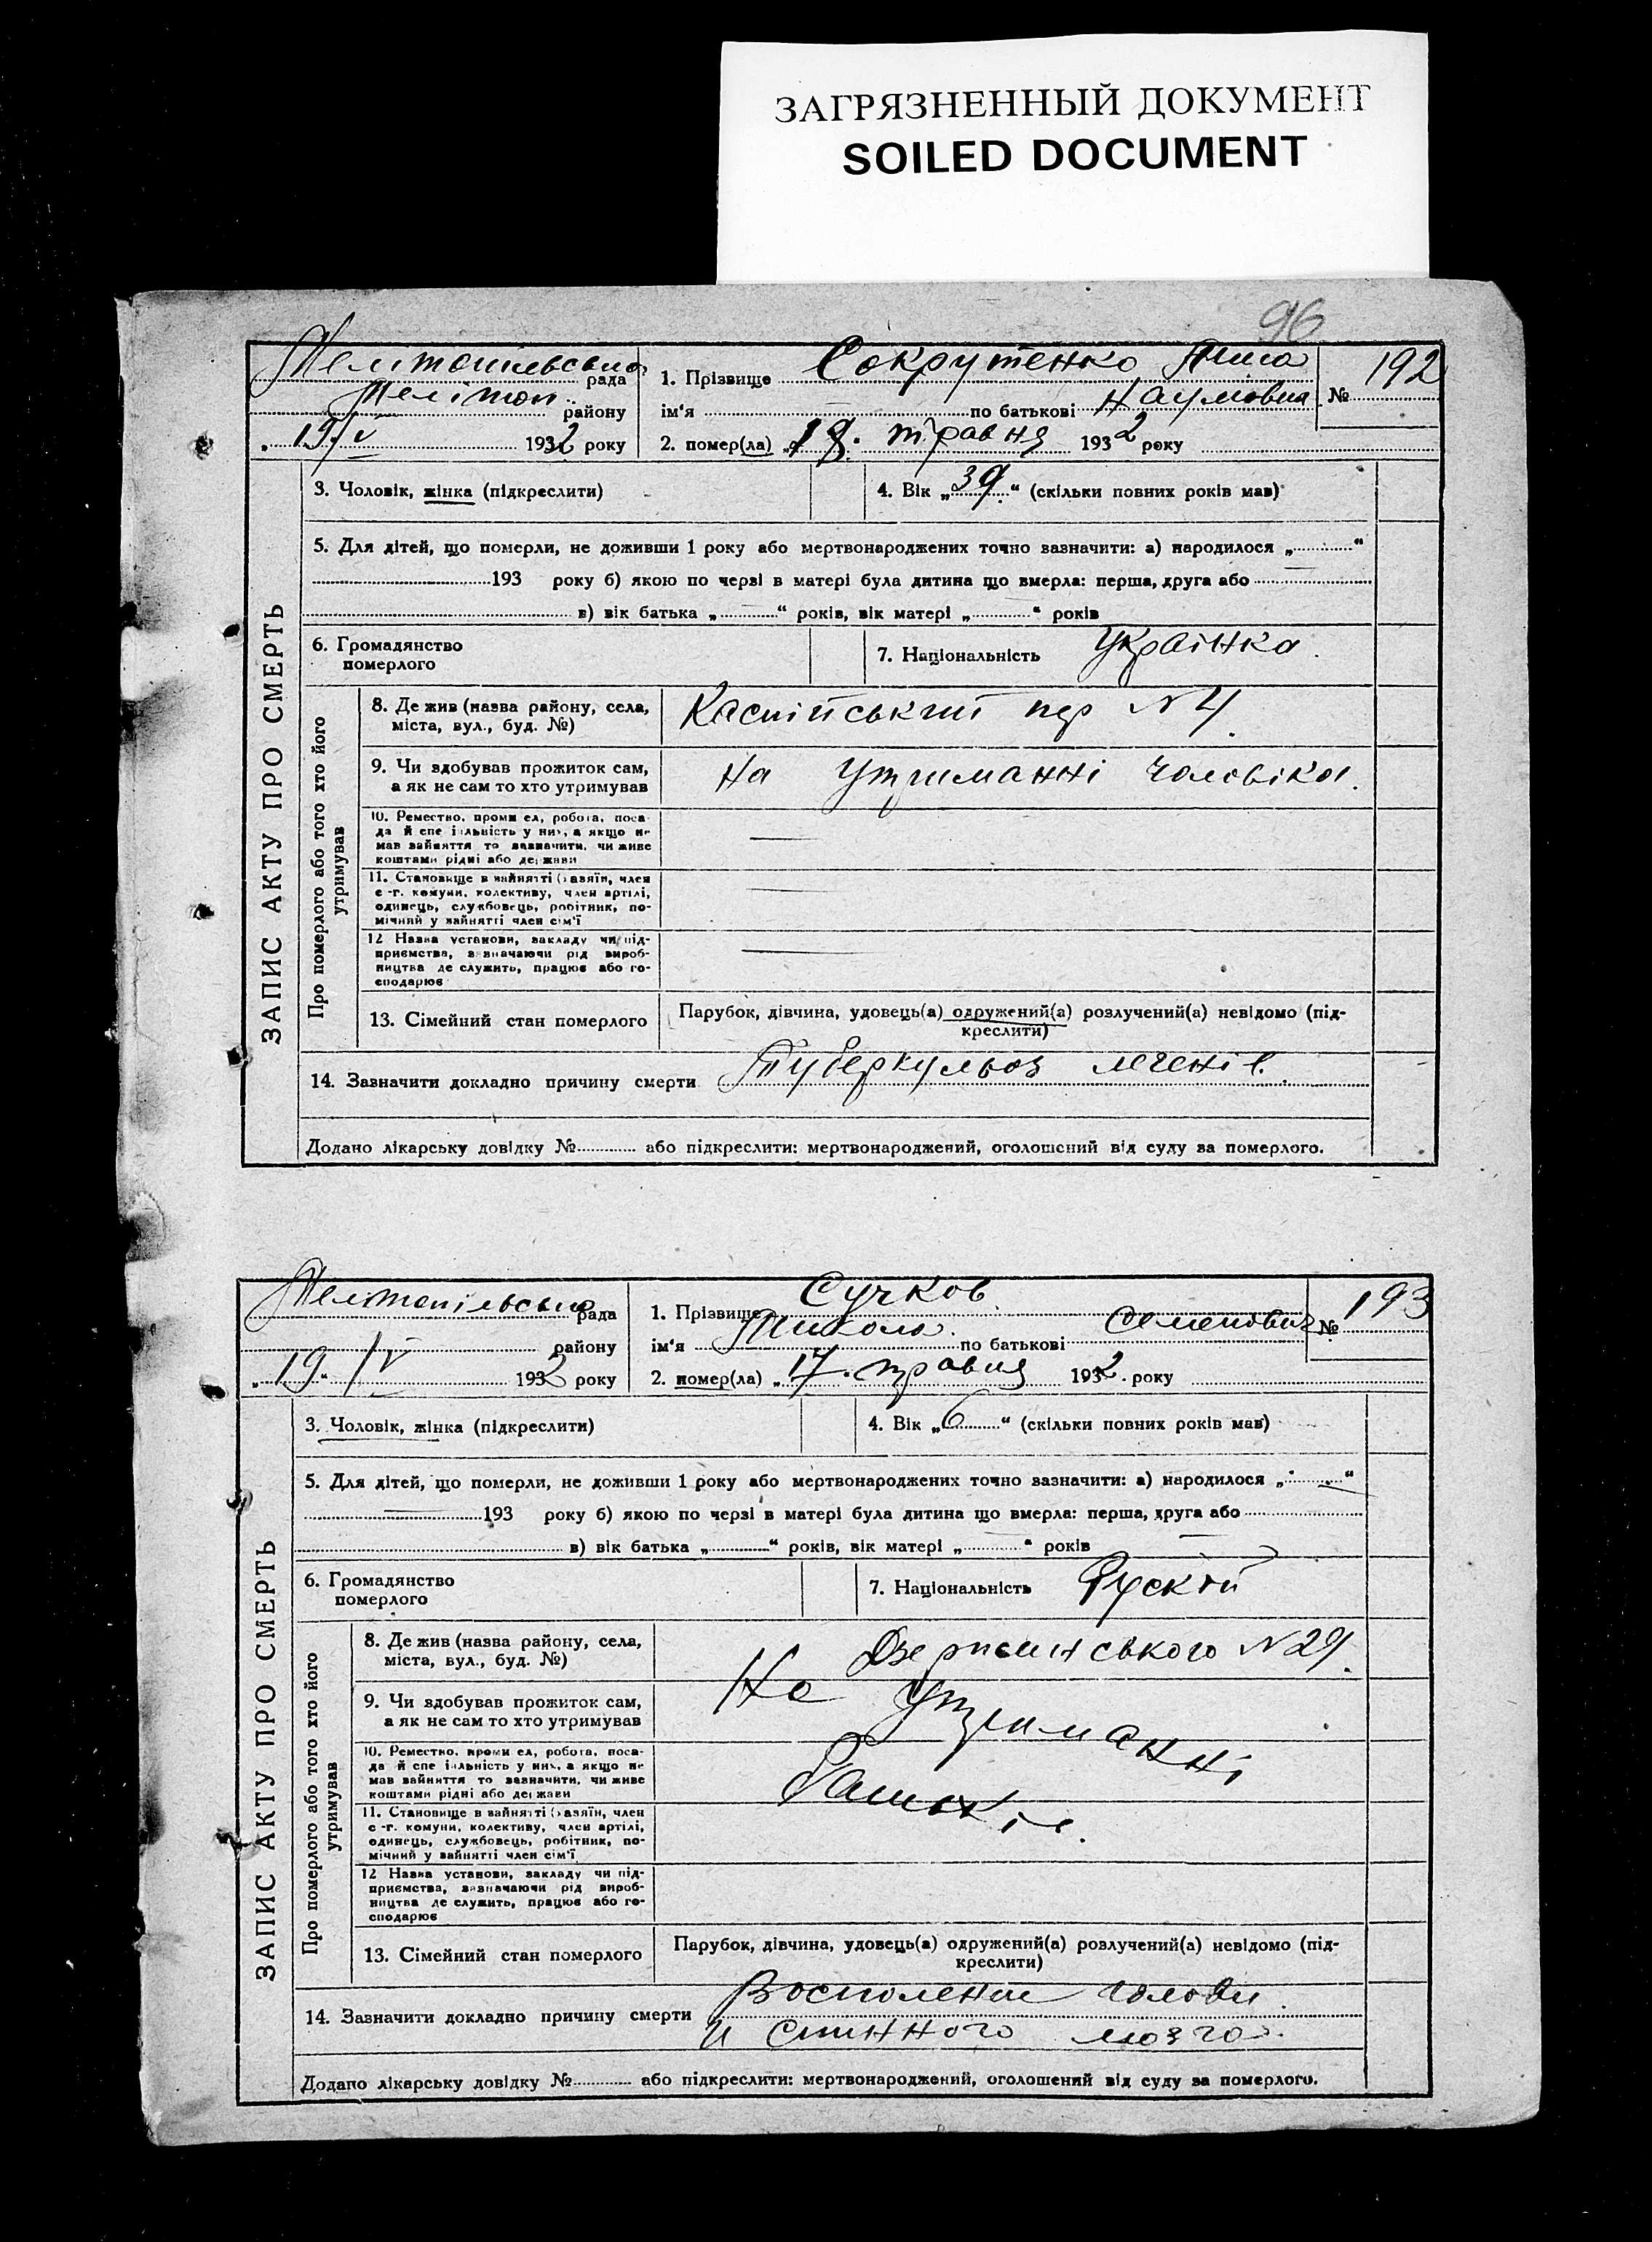 ЗАГРЯЗНЕННЫЙ ДОКУМЕНТ
SOILED DOCUMENT
96
Мелітопільська рада
Мелітоп. району
„ 19/V 1932 року
1. Прізвище Сокрутенко Анна
ім'я по батькові Наумовна
№ 192
2. помер(ла) „18. травня 1932 року
ЗАПИС АКТУ ПРО СМЕРТЬ
3. Чоловік, жінка (підкреслити)
4. Вік „39" (скільки повних років мав)
5. Для дітей, що померли, не доживши 1 року або мертвонароджених точно зазначити: а) народилося „ "
193 року б) якою по черзі в матері була дитина що вмерла: перша, друга або
в) вік батька „ " років, вік матері „ " років
6. Громадянство
померлого
7. Національність Українка.
Про померлого або того хто його
утримував
8. Де жив (назва району, села,
міста, вул., буд. №)
Каспійський пер N 4
9. Чи здобував прожиток сам,
а як не сам то хто утримував
на утриманні чоловіка.
10. Ремество, промисел, робота, поса-
да й спеціяльність у них, а якщо не
мав зайняття то зазначити, чи живе
коштами рідні або держави
11. Становище в зайнятті (хазяїн, член
с.-г. комуни, колективу, член артілі,
одинець, службовець, робітник, по-
мічний у зайнятті член сім'ї
12 Назва установи, закладу чи під-
приємства, зазначаючи рід вироб-
ництва де служить, працює або го-
сподарює
13. Сімейний стан померлого
Парубок, дівчина, удовець(а) одружений(а) розлучений(а) невідомо (під-
креслити)
14. Зазначити докладно причину смерти Туберкульоз легенів.
Додано лікарську довідку № або підкреслити: мертвонароджений, оголошений від суду за померлого.
Мелітопільська рада
району
„ 19. /V 1932 року
1. Прізвище Сучков
ім'я Микола. по батькові Семенович
№ 193
2. помер(ла) „ 17. травня 1932. року
ЗАПИС АКТУ ПРО СМЕРТЬ
3. Чоловік, жінка (підкреслити)
4. Вік „6" (скільки повних років мав)
5. Для дітей, що померли, не доживши 1 року або мертвонароджених точно зазначити: а) народилося „ "
193 року б) якою по черзі в матері була дитина що вмерла: перша, друга або
в) вік батька „ " років, вік матері „ " років
6. Громадянство
померлого
7. Національність Руский
Про померлого або того хто його
утримував
8. Де жив (назва району, села,
міста, вул., буд. №)
Дзержинського N 29.
9. Чи здобував прожиток сам,
а як не сам то хто утримував
На утриманні
батьків.
10. Ремество, промисел, робота, поса-
да й спеціяльність у них, а якщо не
мав зайняття то зазначити, чи живе
коштами рідні або держави
11. Становище в зайнятті (хазяїн, член
с.-г. комуни, колективу, член артілі,
одинець, службовець, робітник, по-
мічний у зайнятті член сім'ї
12 Назва установи, закладу чи під-
приємства, зазначаючи рід вироб-
ництва де служить, працює або го-
сподарює
13. Сімейний стан померлого
Парубок, дівчина, удовець(а) одружений(а) розлучений(а) невідомо (під-
креслити)
14. Зазначити докладно причину смерти Восполение голови
и спинного мозга.
Додано лікарську довідку № або підкреслити: мертвонароджений, оголошений від суду за померлого.